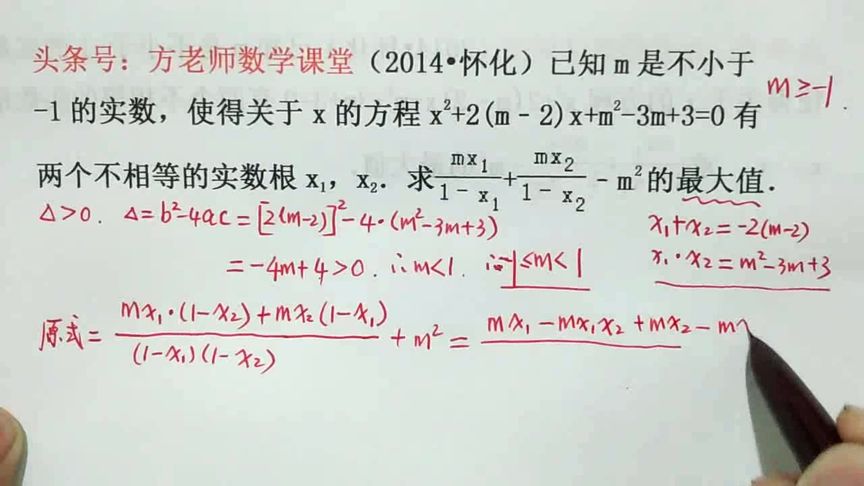 头条号：方老师数学课堂（2014•怀化）已知 m 是不小于
m≥-1.
-1 的实数，使得关于 x 的方程 x²+2(m﹣2)x+m²-3m+3=0 有
两个不相等的实数根 x₁，x₂．求 mx₁/(1-x₁)+mx₂/(1-x₂)﹣m²的最大值．
△>0. △=b²-4ac=[2(m-2)]²-4·(m²-3m+3)
x₁+x₂=-2(m-2)
=-4m+4>0. ∴m<1. ∴-1≤m<1
x₁·x₂=m²-3m+3
原式= (mx₁·(1-x₂)+mx₂(1-x₁))/((1-x₁)(1-x₂)) + m² = mx₁-mx₁x₂+mx₂-m